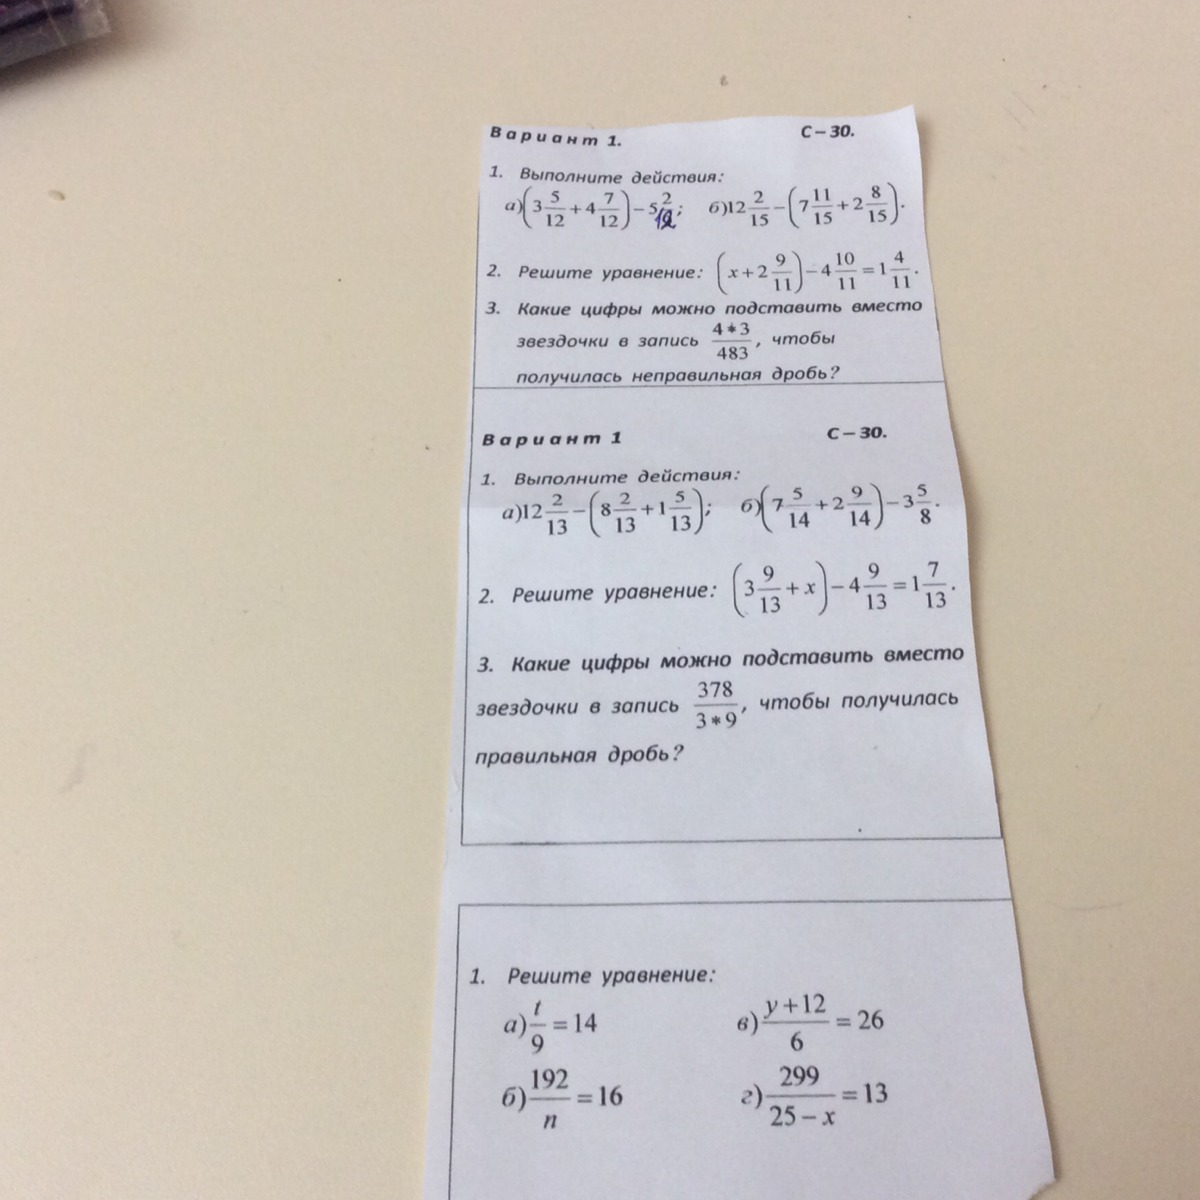 Вариант 1. С – 30.
1. Выполните действия:
а)(3 5/12 + 4 7/12) – 5 2/12; б)12 2/15 – (7 11/15 + 2 8/15).
2. Решите уравнение: (x + 2 9/11) – 4 10/11 = 1 4/11.
3. Какие цифры можно подставить вместо
звездочки в запись 4*3/483, чтобы
получилась неправильная дробь?
Вариант 1 С – 30.
1. Выполните действия:
а)12 2/13 – (8 2/13 + 1 5/13); б)(7 5/14 + 2 9/14) – 3 5/8.
2. Решите уравнение: (3 9/13 + x) – 4 9/13 = 1 7/13.
3. Какие цифры можно подставить вместо
звездочки в запись 378/3*9, чтобы получилась
правильная дробь?
1. Решите уравнение:
а) t/9 = 14 в) y+12/6 = 26
б) 192/n = 16 г) 299/25 – x = 13